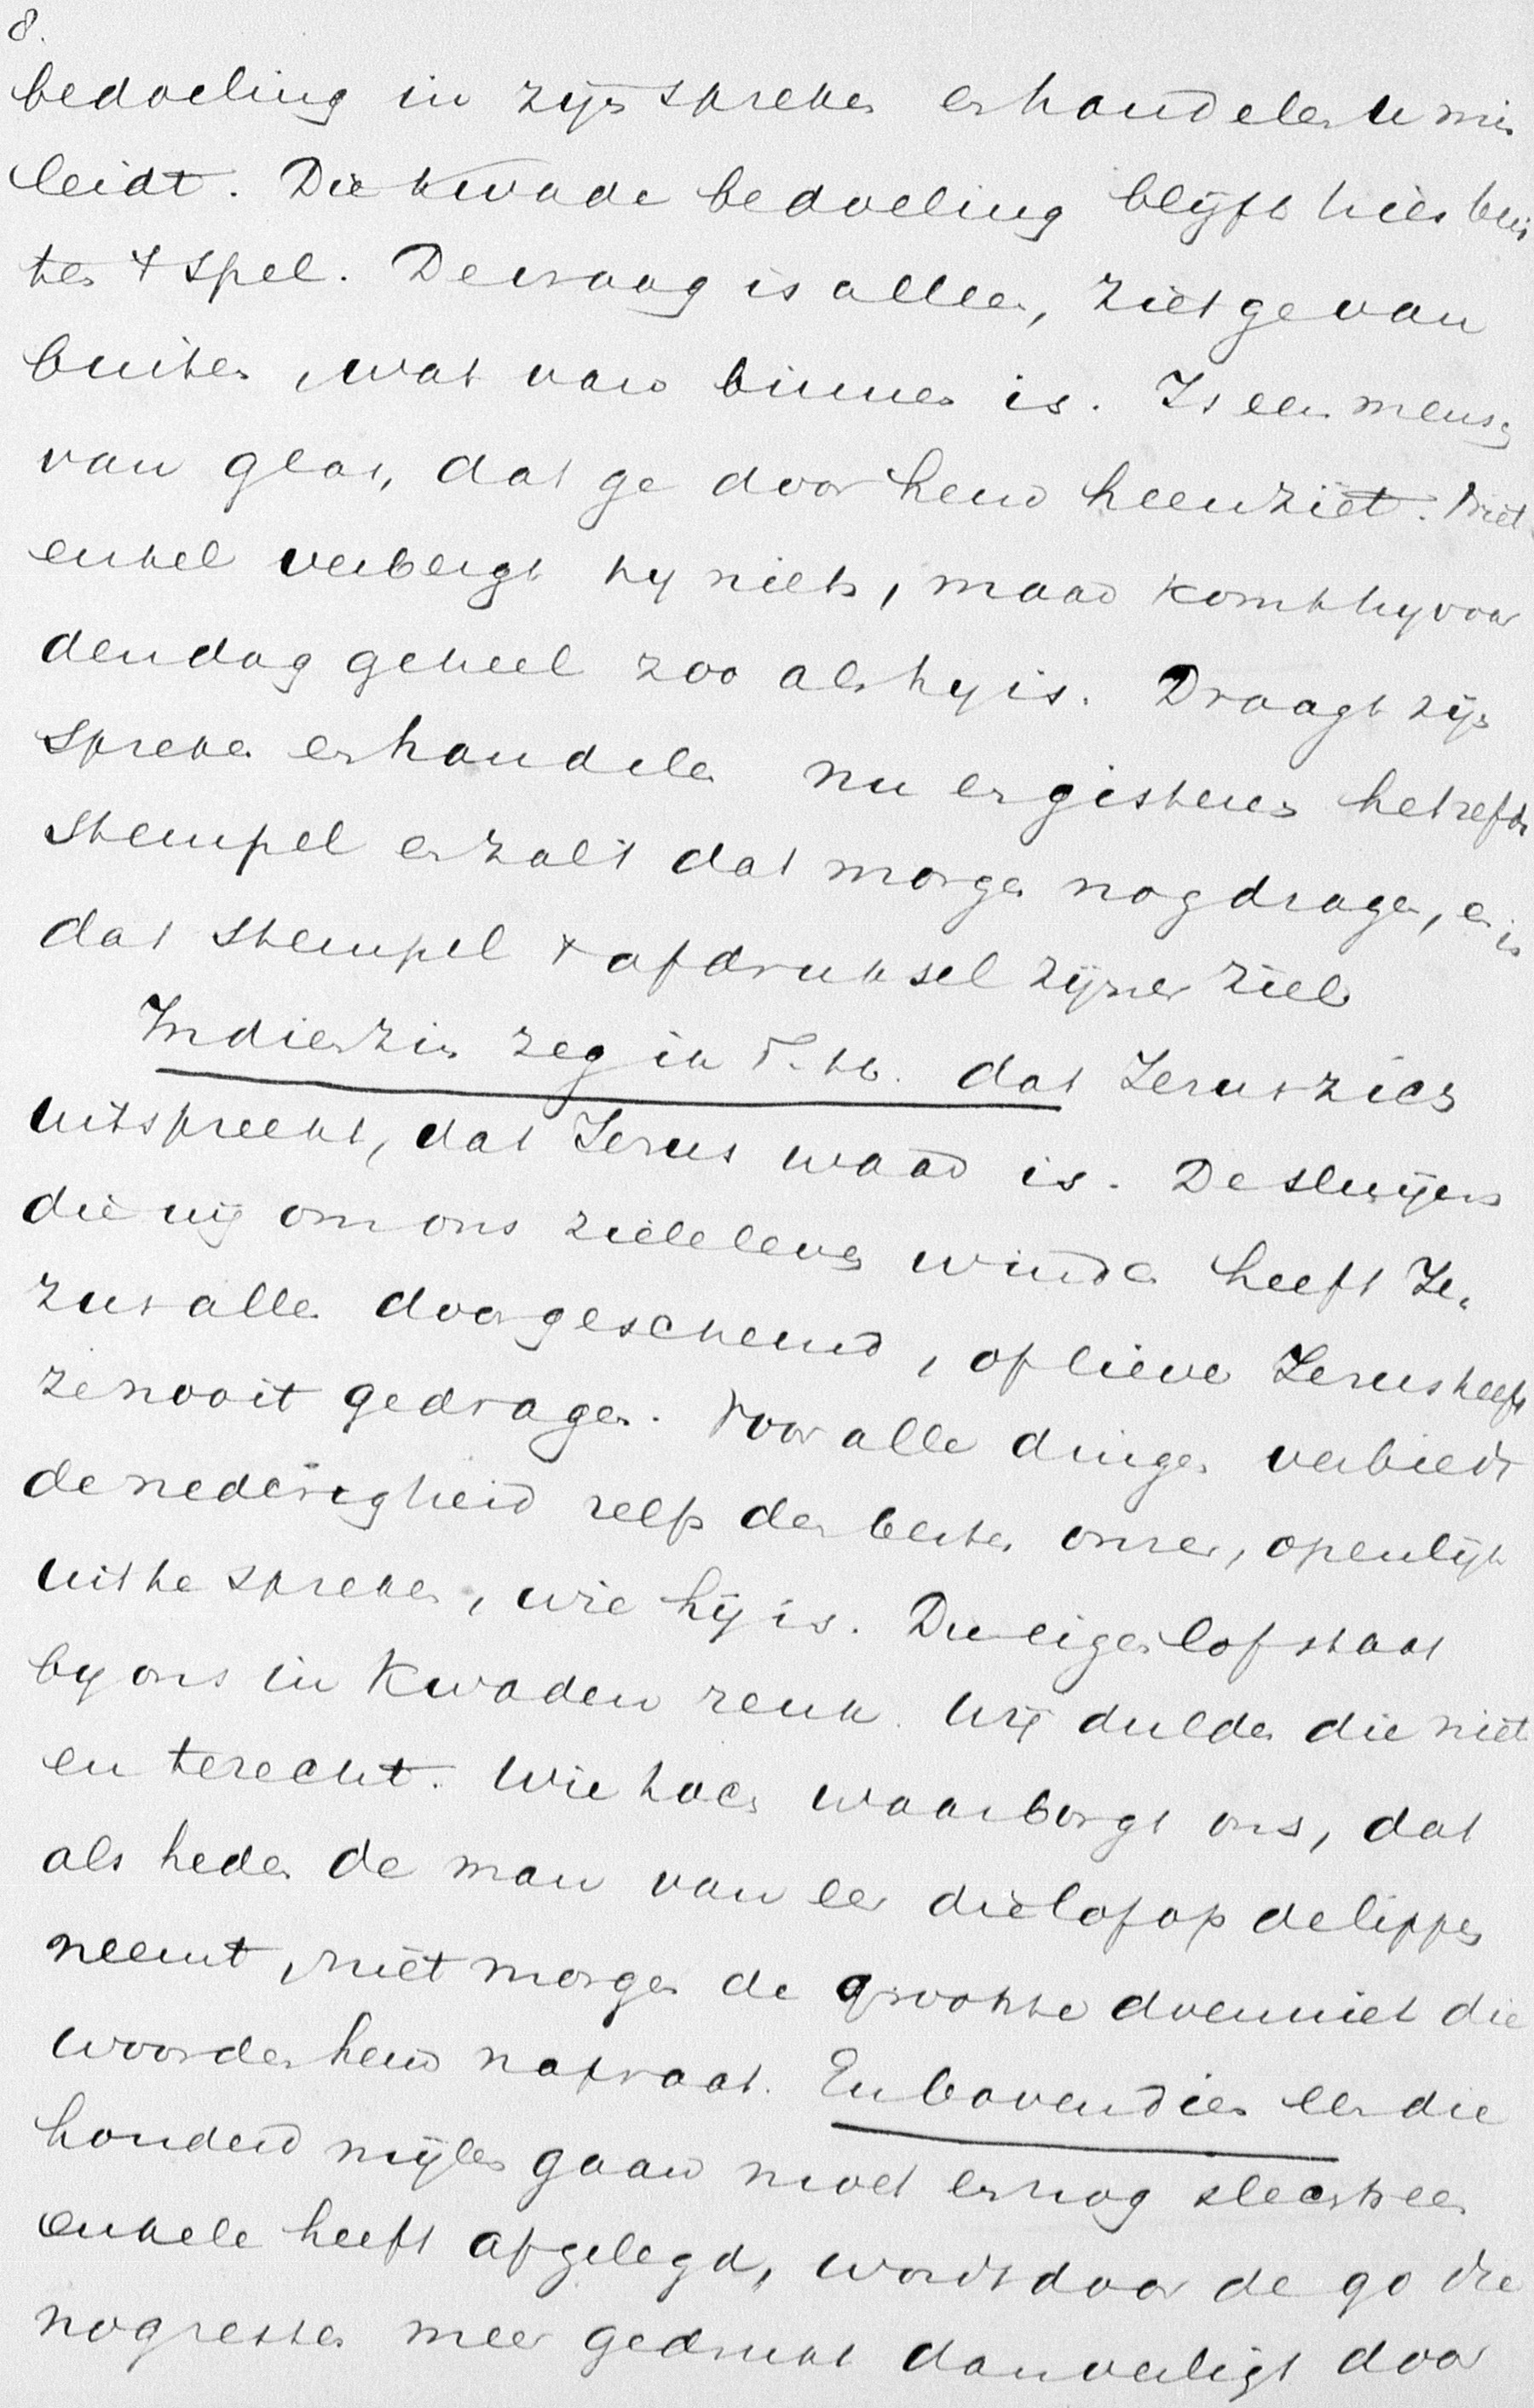 8.
bedoeling in zijn spreken en handelen u mis
leidt. Die kwade bedoeling blijft hier bui
ten 't spel. De vraag is alleen, ziet ge van
buiten, wat van binnen is. Is een mensch
van glas, dat ge door hem heenziet. Niet
enkel verbergt hy niets, maar komt hy voor
den dag geheel zoo als hy is. Draagt zijn
spreken en handelen nu en gisteren hetzelfde
stempel en zal 't dat morgen nog dragen, en is
dat stempel 't afdruksel zijner ziel
In dien zin zeg ik V. H. dat Jezus zich
uitspreekt, dat Jezus waar is. De sluijers
die wij om ons zieleleven winden heeft Je-
zus allen doorgescheurd, of liever Jezus heeft
ze nooit gedragen. Voor alle dingen verbiedt
de nederigheid zelfs den besten onzer, openlijk
uit te spreken, wie hij is. Die eigen lof staat
by ons in kwaden reuk. Wij dulden die niet
en terecht. Wie toch waarborgt ons, dat
als heden de man van eer die lof op de lippen
neemt, niet morgen de grootste doeniet die
woorden hem napraat. En bovendien een die
honderd mijlen gaan moet en nog slechts een
enkele heeft afgelegd, wordt door de 90 die
nog resten meer gedrukt dan verligt door